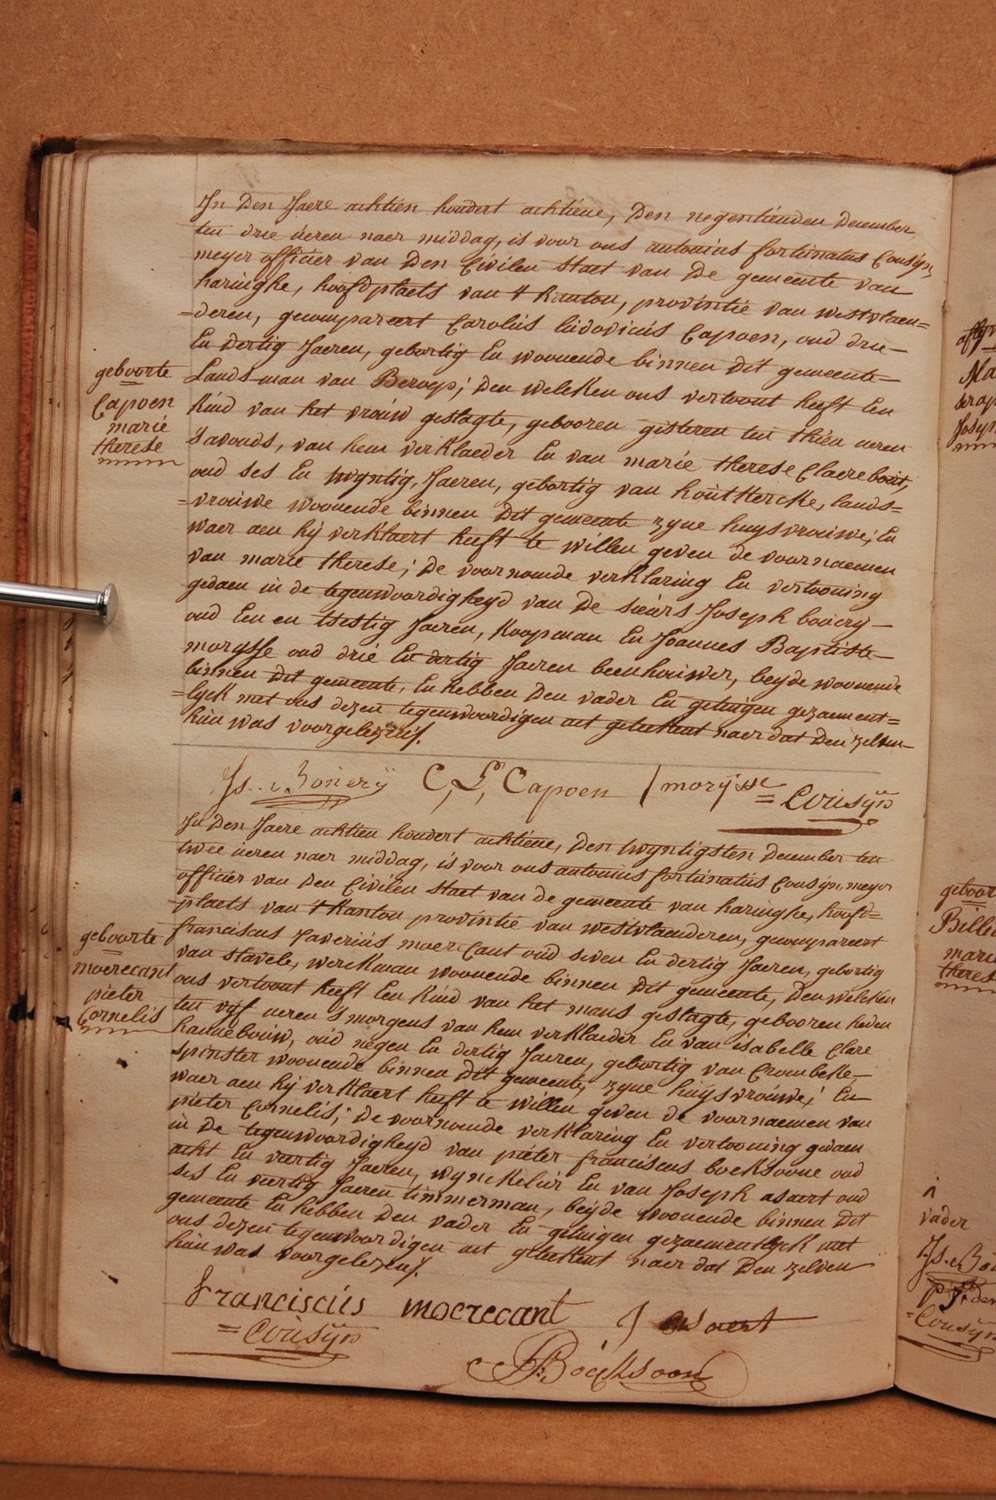 In Den Jaere achtien hondert achtiene, Den negentienden December
ten drie ueren naer middag, is voor ons antonius fortunatus Cousijn
meyer officier van Den Civilen Staet van De gemeente van
haringhe, hoofdplaets van 't kanton, provintie van westvlaen=
=deren, gecompareert Carolus ludovicus Capoen, oud drie
En dertig Jaeren, gebortig En woonende binnen Dit gemeente
Landsman van Beroep; Den welcken ons vertoont heeft Een
kind van het vrouw geslagte, gebooren gisteren ten thien ueren
s'avonds, van hem verklaeder En van marie therese Claerebout,
oud ses En twyntig Jaeren, gebortig van houtkercke, lands=
=vrouwe woonende binnen Dit gemeente zyne huysvrouwe; En
waer aen hij verklaert heeft te willen geven de voornaemen
van marie therese; De voornomde verklaring En vertooning
gedaen in de tegenwoordigheyd van De sieurs Joseph bouery
oud Een en tsestig Jaeren, koopman En Joannes Baptiste
morysse oud drie En dertig Jaeren beenhouwer, beyde woonende
binnen Dit gemeente, En hebben Den vader En getuigen gezaement=
=lyck met ons dezen tegenwoordigen act geteekent naer dat Den zelven
hun was voorgelezen.
geboorte
Capoen
marie
therese
Js. Bouerij C, L, Capoen J morijsse
= Cousijn
In Den Jaere achtien hondert achtiene, Den twyntigsten December ten
twee ueren naer middag, is voor ons antonius fortunatus Cousyn, meyer
officier van Den Civilen Staet van de gemeente van haringhe, hoofd=
=plaets van 't kanton provintie van westvlaenderen, gecompareert
franciscus xaverius moerecant oud seven En dertig Jaeren, gebortig
van Stavele, werckman woonende binnen Dit gemeente, Den welcken
ons vertoont heeft Een kind van het mans geslagte, gebooren heden
ten vyf ueren s'morgens van hem verklaeder En van isabelle Clere
hannebouw, oud negen En dertig Jaeren, gebortig van Crombeke
spinster woonende binnen Dit gemeente, zyne huysvrouwe; En
waer aen hij verklaert heeft te willen geven de voornaemen van
pieter Cornelis; De voornomde verklaring En vertooning gedaen
in De tegenwoordigheyd van pieter franciscus bocksoone oud
acht En veertig Jaeren, wynckelier En van Joseph asaert oud
ses En veertig Jaeren timmerman, beyde woonende binnen Dit
gemeente En hebben Den vader En getuigen gezaementlyck met
ons dezen tegenwoordigen act geteekent naer dat Den zelven
hun was voorgelezen.
geboorte
moerecant
pieter
Cornelis
franciscus moerecant J asaert
= Cousijn
Boecksoon
Ma
Josep
geboor
Bille
marie
theres
vader
Js. Bou
= Cousijn